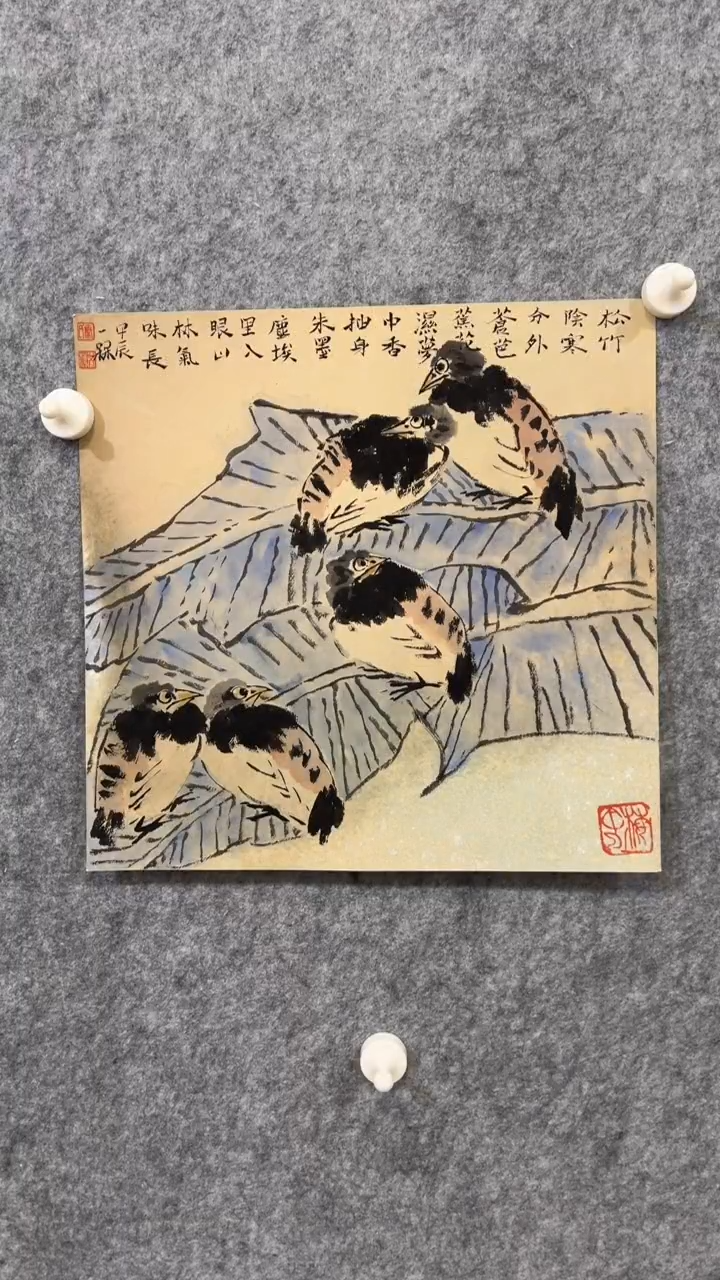 松竹
陰寒
分外
蒼芭
蕉花
濕夢
巾香
抽身
朱墨
塵埃
里入
眼山
林氣
味長
甲辰
一